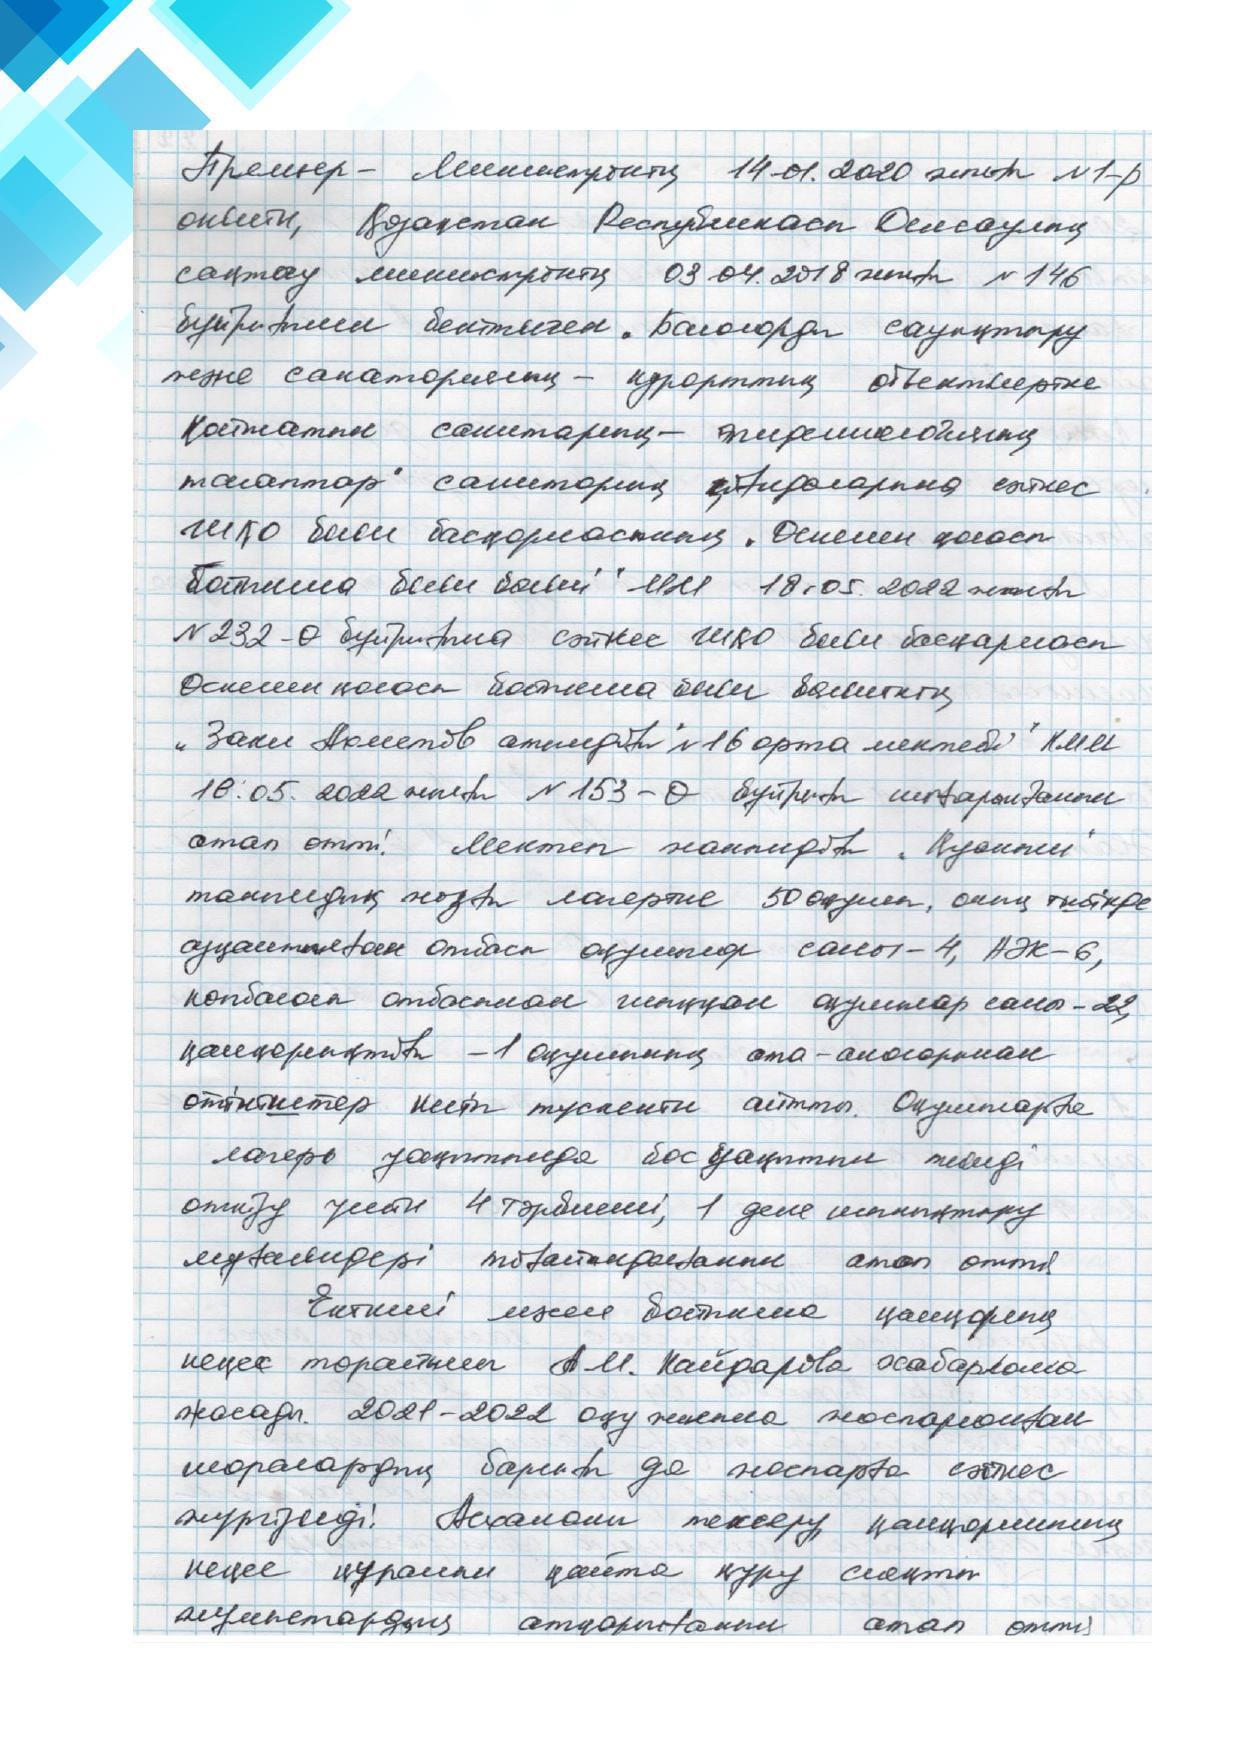 Премьер - Министрінің 14.01.2020 жылғы №1-р
өкімін, Қазақстан Республикасы Денсаулық
сақтау министрінің 03.04.2018 жылғы №146
бұйрығымен бекітілген „Балаларды сауықтыру
және санаторийлық - курорттық объектілеріне
қойылатын санитарлық - эпидемиологиялық
талаптар" санитарлық қағидаларына сәйкес
ШҚО білім басқармасының „Өскемен қаласы
бойынша білім бөлімі" ММ 18.05.2022 жылғы
№232-Ө бұйрығына сәйкес ШҚО білім басқармасы
Өскемен қаласы бойынша білім бөлімінің
„Заки Ахметов атындағы №16 орта мектебі" КММ
18.05.2022 жылғы №153-Ө бұйрығы шығарылғанын
атап өтті. Мектеп жанындағы „Қуаныш"
тынымдық жазғы лагеріне 50 оқушы, оның ішінде
отбасы оқушылар саны-4, АӘК-6,
көпбалалы отбасынан шыққан оқушылар саны-22,
қамқорлықтағы -1 оқушының ата-аналарынан
өтініштер келіп түскенін айтты. Оқушыларға
лагерь уақытында бос уақытын тиімді
өткізу үшін 4 тәрбиеші, 1 дене шынықтыру
мұғалімдері тағайындалғанын атап өтті
Екінші мәселе бойынша қамқорлық
кеңес төрайымы А.М. Кайдарова хабарлама
жасады. 2021-2022 оқу жылына жоспарланған
шаралардың барлығы да жоспарға сәйкес
жүргізілді. Асхананы тексеру, қамқоршылық
кеңес құрамын қайта құру сияқты
жұмыстардың атқарылғанын атап өтті